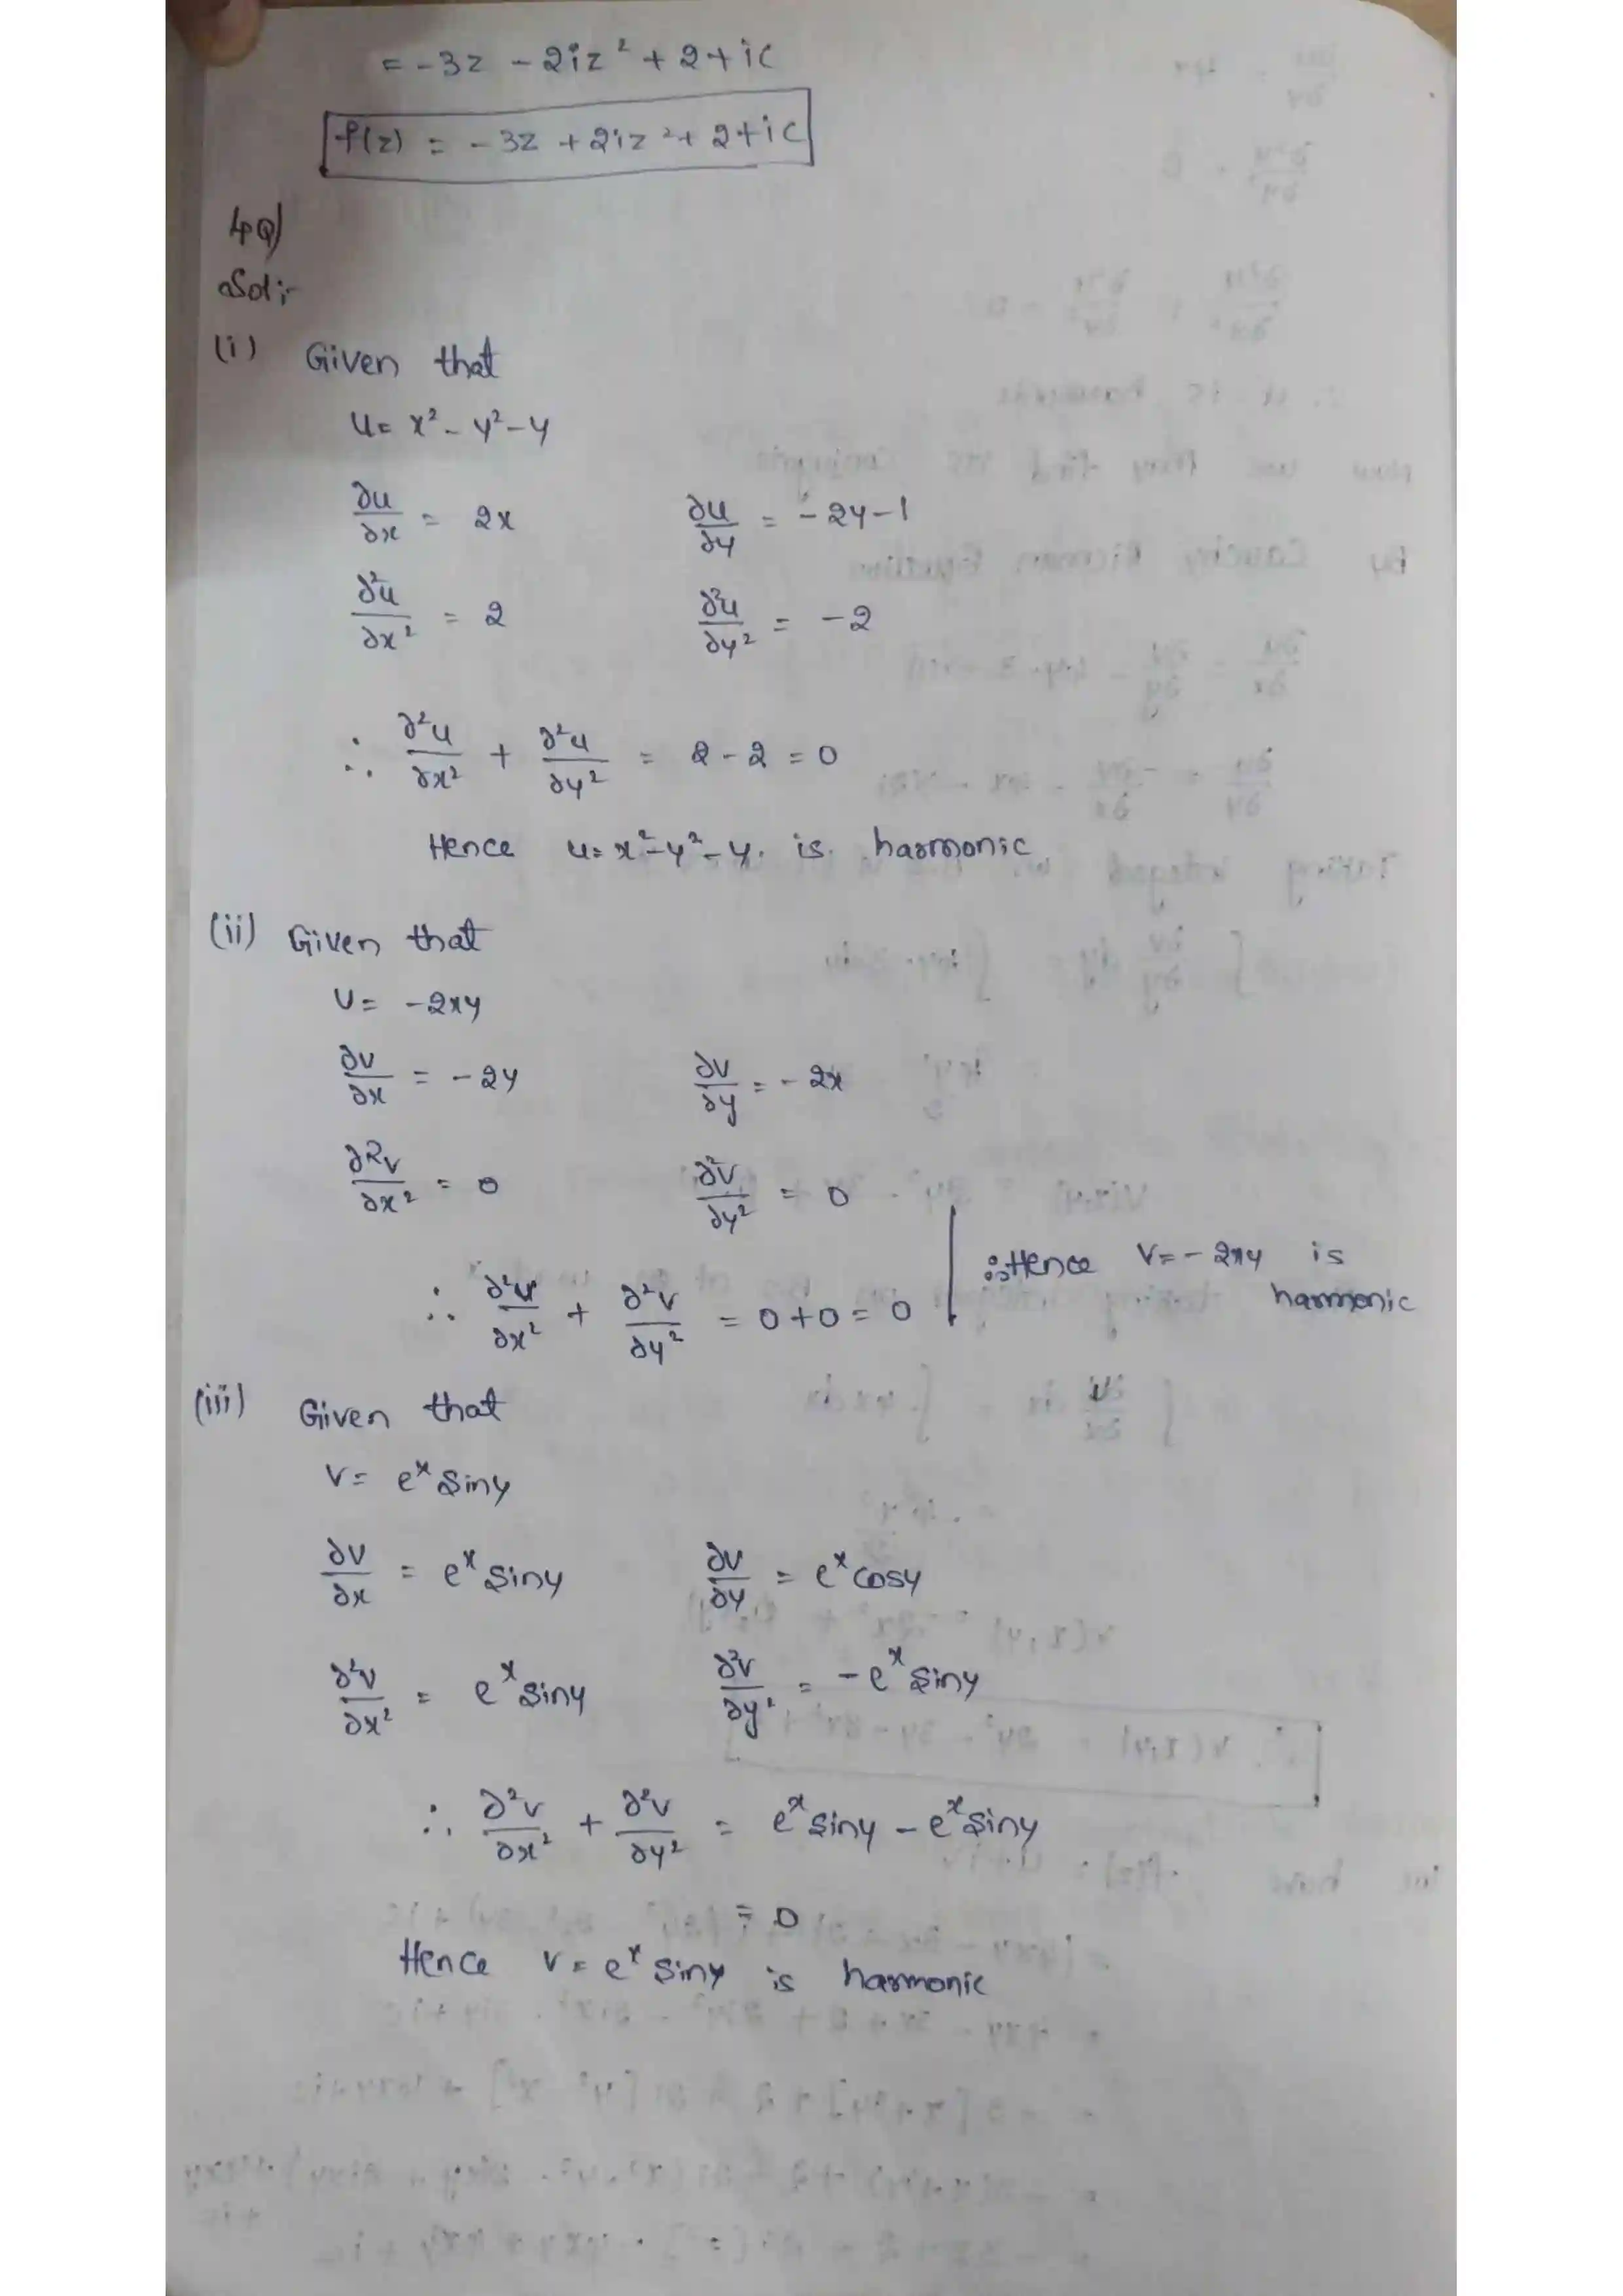 = -3z - 2iz² + 2 + ic
f(z) = -3z + 2iz² + 2 + ic
4Q)
Sol:-
(i) Given that
u = x² - y² - y
∂u/∂x = 2x ∂u/∂y = -2y-1
∂²u/∂x² = 2 ∂²u/∂y² = -2
∴ ∂²u/∂x² + ∂²u/∂y² = 2 - 2 = 0
Hence u = x² - y² - y. is harmonic
(ii) Given that
V = -2xy
∂v/∂x = -2y ∂v/∂y = -2x
∂²v/∂x² = 0 ∂²v/∂y² = 0
∴ ∂²v/∂x² + ∂²v/∂y² = 0+0 = 0
∴ Hence V = -2xy is
harmonic
(iii) Given that
V = eˣ siny
∂v/∂x = eˣ siny ∂v/∂y = eˣ cosy
∂²v/∂x² = eˣ siny ∂²v/∂y² = -eˣ siny
∴ ∂²v/∂x² + ∂²v/∂y² = eˣ siny - eˣ siny
= 0
Hence v = eˣ siny is harmonic